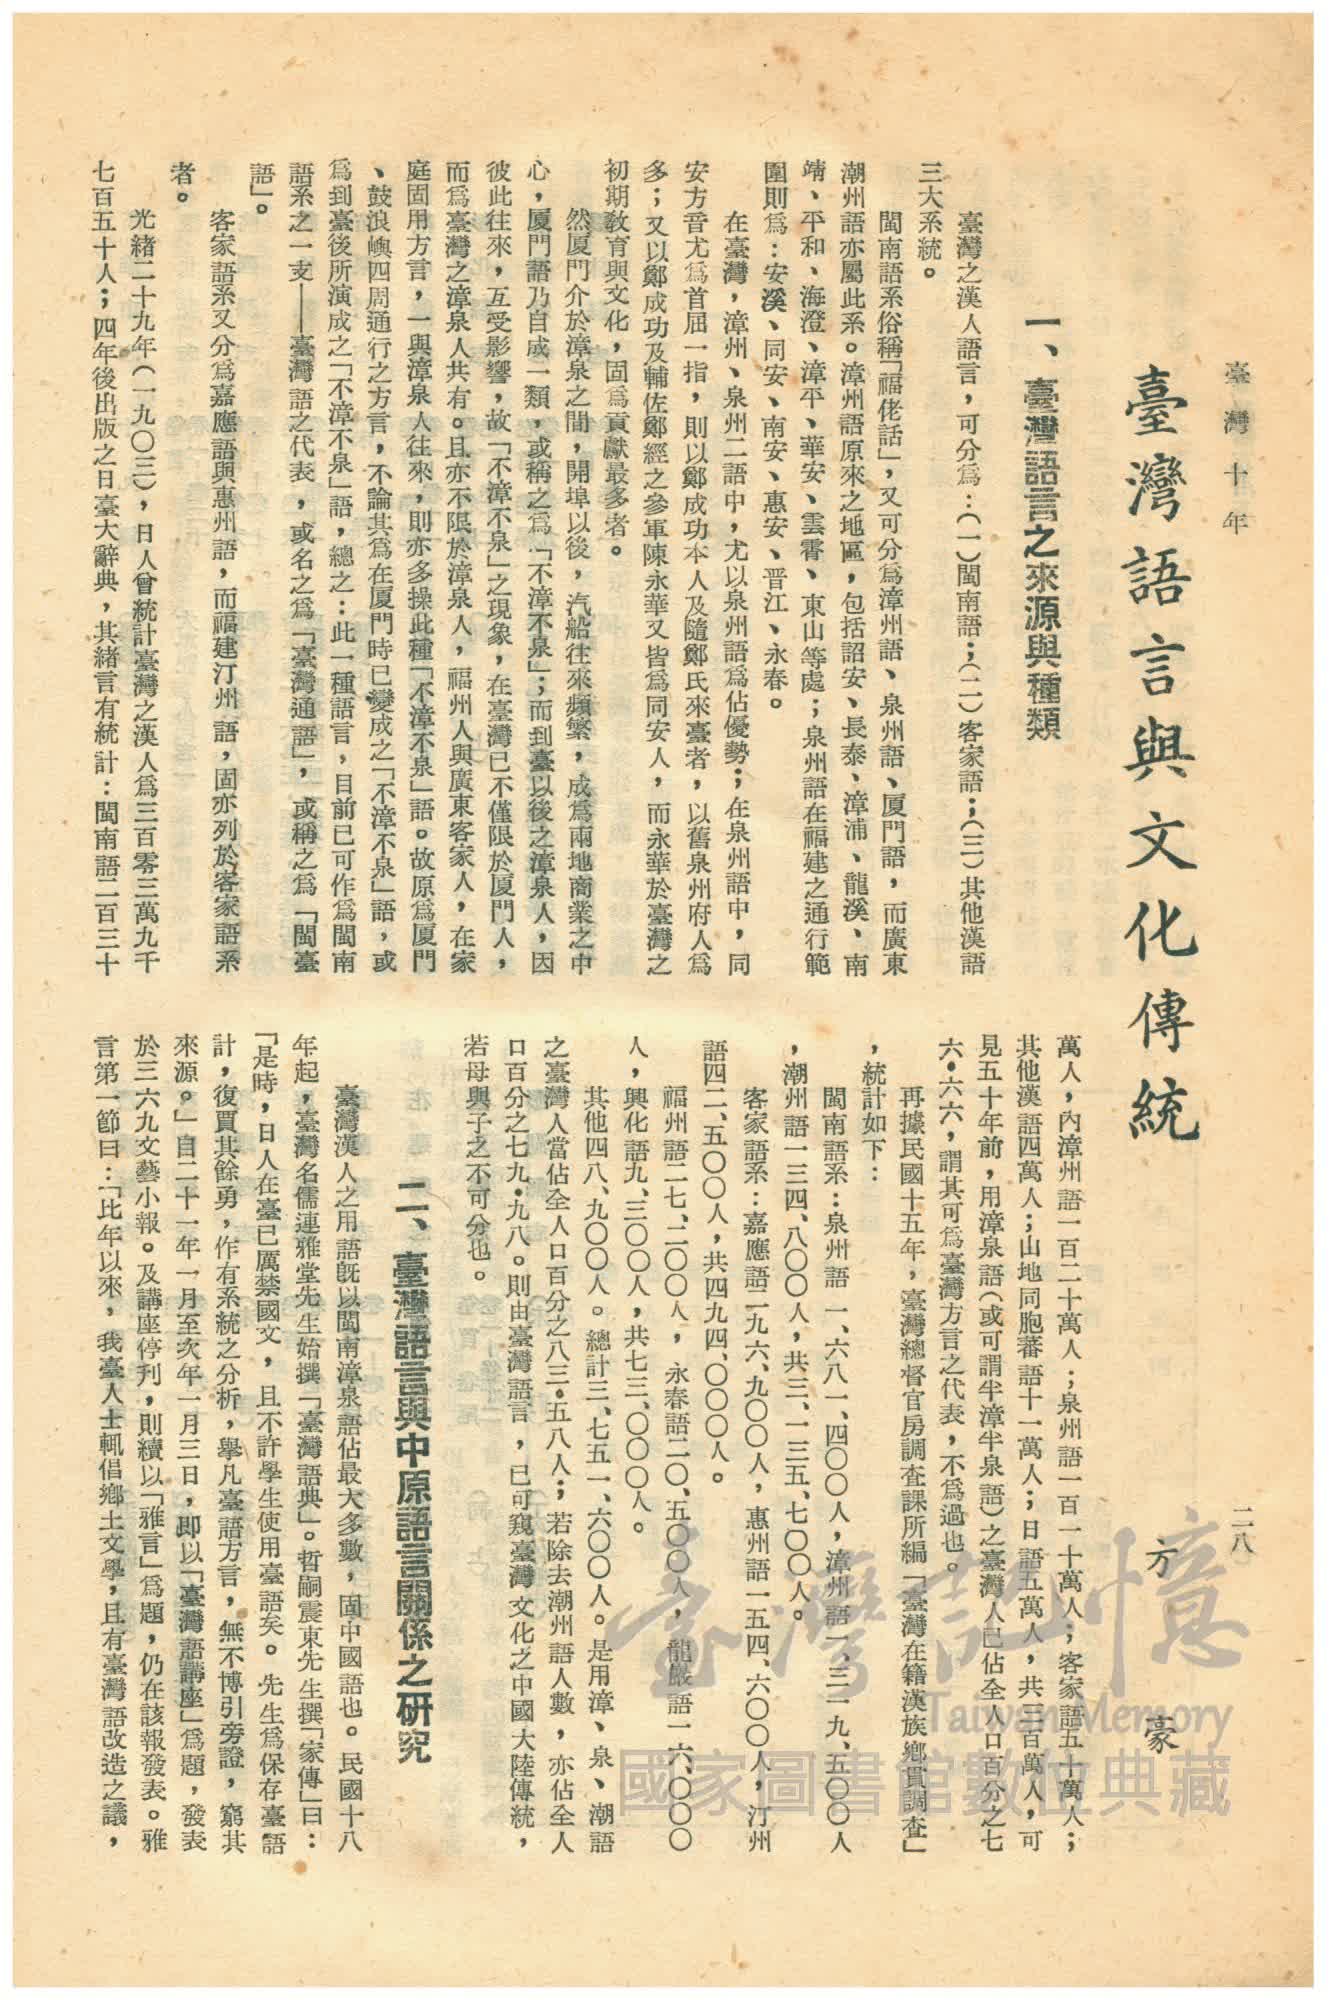 臺灣十年
二八
臺灣語言與文化傳統
方豪
一、臺灣語言之來源與種類
臺灣之漢人語言，可分爲：（一）閩南語；（二）客家語；（三）其他漢語
三大系統。
閩南語系俗稱「福佬話」，又可分爲漳州語、泉州語、厦門語，而廣東
潮州語亦屬此系。漳州語原來之地區，包括詔安、長泰、漳浦、龍溪、南
靖、平和、海澄、漳平、華安、雲霄、東山等處；泉州語在福建之通行範
圍則爲：安溪、同安、南安、惠安、晋江、永春。
在臺灣，漳州、泉州二語中，尤以泉州語爲佔優勢；在泉州語中，同
安方音尤爲首屈一指，則以鄭成功本人及隨鄭氏來臺者，以舊泉州府人爲
多；又以鄭成功及輔佐鄭經之參軍陳永華又皆爲同安人，而永華於臺灣之
初期敎育與文化，固爲貢獻最多者。
然厦門介於漳泉之間，開埠以後，汽船往來頻繁，成爲兩地商業之中
心，厦門語乃自成一類，或稱之爲「不漳不泉」；而到臺以後之漳泉人，因
彼此往來，互受影響，故「不漳不泉」之現象，在臺灣已不僅限於厦門人，
而爲臺灣之漳泉人共有。且亦不限於漳泉人，福州人與廣東客家人，在家
庭固用方言，一與漳泉人往來，則亦多操此種「不漳不泉」語。故原爲厦門
、鼓浪嶼四周通行之方言，不論其爲在厦門時已變成之「不漳不泉」語，或
爲到臺後所演成之「不漳不泉」語，總之：此一種語言，目前已可作爲閩南
語系之一支——臺灣語之代表，或名之爲「臺灣通語」，或稱之爲「閩臺
語」。
客家語系又分爲嘉應語與惠州語，而福建汀州語，固亦列於客家語系
者。
光緒二十九年（一九〇三），日人曾統計臺灣之漢人爲三百零三萬九千
七百五十人；四年後出版之日臺大辭典，其緖言有統計：閩南語二百三十
萬人，內漳州語一百二十萬人；泉州語一百一十萬人；客家語五十萬人；
其他漢語四萬人；山地同胞蕃語十一萬人；日語五萬人，共三百萬人，可
見五十年前，用漳泉語（或可謂半漳半泉語）之臺灣人已佔全人口百分之七
六·六六，謂其可爲臺灣方言之代表，不爲過也。
再據民國十五年，臺灣總督官房調查課所編「臺灣在籍漢族鄕貫調查」
，統計如下：
閩南語系：泉州語一、六八一、四〇〇人，漳州語一、三一九、五〇〇人
，潮州語一三四、八〇〇人，共三、一三五、七〇〇人。
客家語系：嘉應語二九六、九〇〇人，惠州語一五四、六〇〇人，汀州
語四二、五〇〇人，共四九四、〇〇〇人。
福州語二七、二〇〇人，永春語二〇、五〇〇人，龍巖語一六、〇〇〇
人，興化語九、三〇〇人，共七三、〇〇〇人。
其他四八、九〇〇人。總計三、七五一、六〇〇人。是用漳、泉、潮語
之臺灣人當佔全人口百分之八三·五八人；若除去潮州語人數，亦佔全人
口百分之七九·九八。則由臺灣語言，已可窺臺灣文化之中國大陸傳統，
若母與子之不可分也。
二、臺灣語言與中原語言關係之研究
臺灣漢人之用語旣以閩南漳泉語佔最大多數，固中國語也。民國十八
年起，臺灣名儒連雅堂先生始撰「臺灣語典」。哲嗣震東先生撰「家傳」曰：
「是時，日人在臺已厲禁國文，且不許學生使用臺語矣。先生爲保存臺語
計，復賈其餘勇，作有系統之分析，擧凡臺語方言，無不博引旁證，窮其
來源。」自二十一年一月至次年一月三日，即以「臺灣語講座」爲題，發表
於三六九文藝小報。及講座停刊，則續以「雅言」爲題，仍在該報發表。雅
言第一節曰：「比年以來，我臺人士輒倡鄕土文學，且有臺灣語改造之議，
臺灣記憶
Taiwan Memory
國家圖書館數位典藏